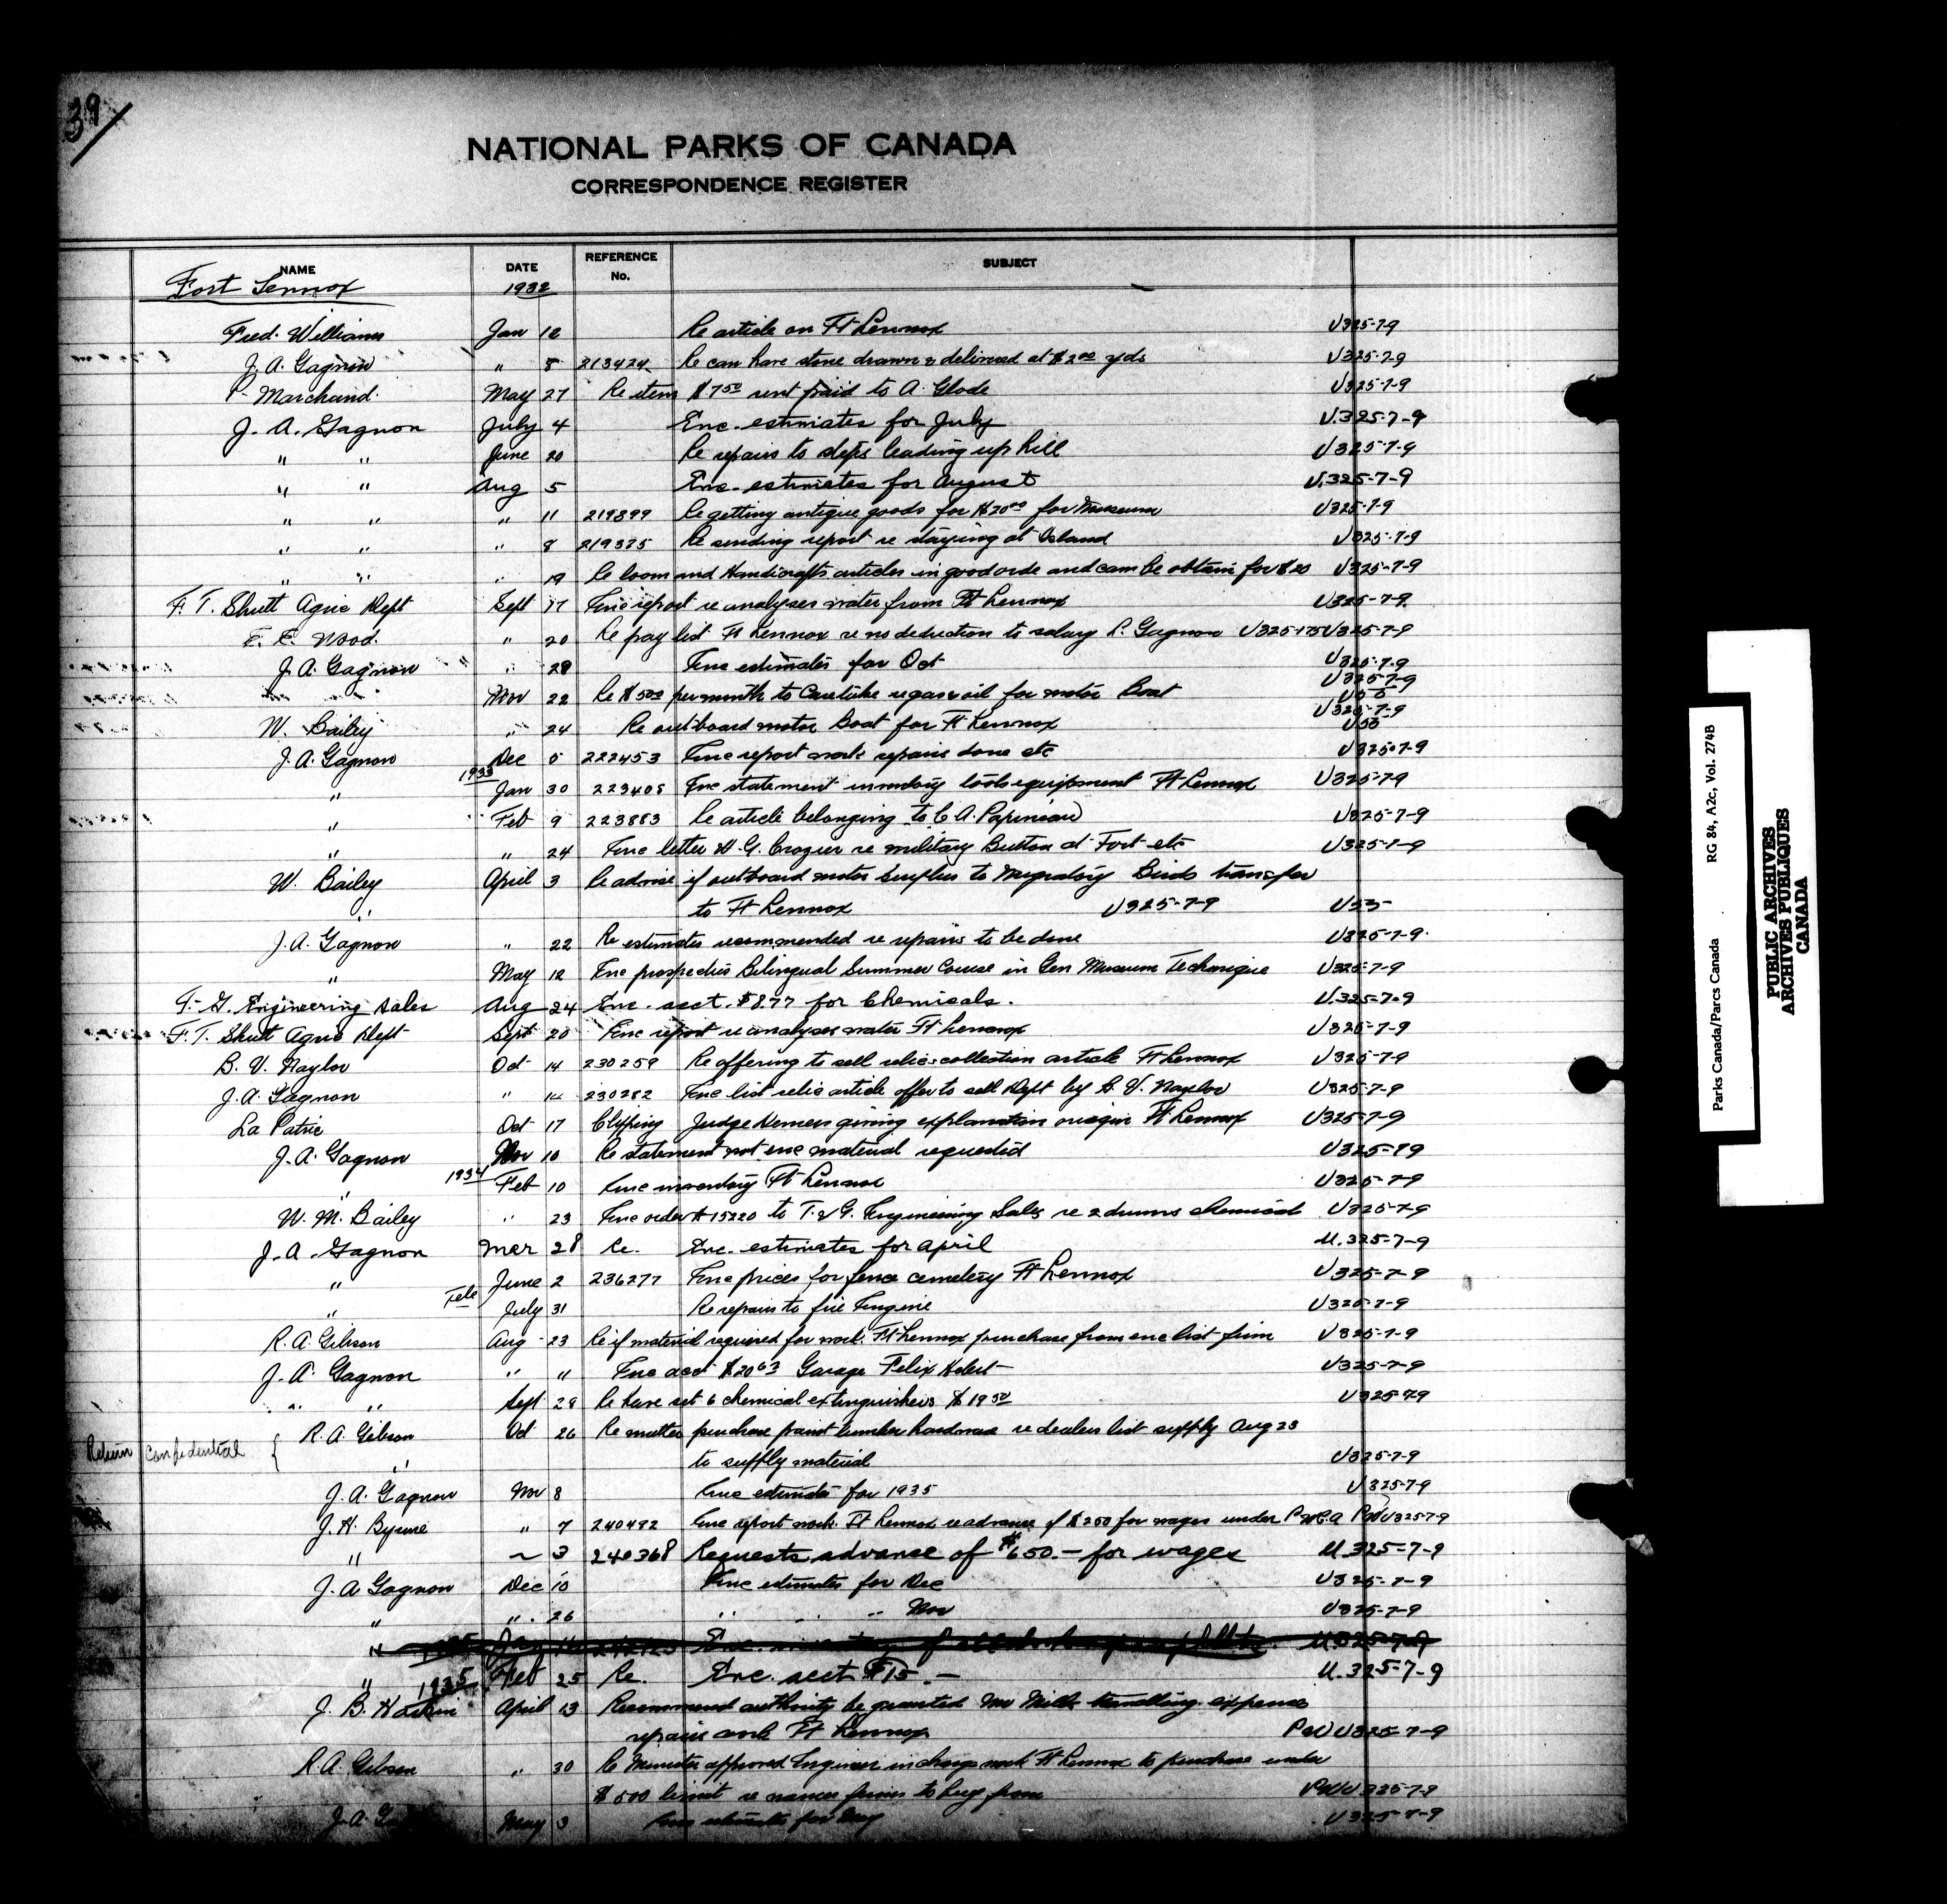 39
NATIONAL PARKS OF CANADA
CORRESPONDENCE REGISTER
NAME DATE REFERENCE No. SUBJECT
Fort Lennox 1932
Fred. Williams Jan 12 Re article on Ft Lennox U325-7-9
J. A. Gagnon " 8 213424 Re can have stone drawn & delivered at $2.00 yds U325-7-9
P. Marchand. May 27 Re item $7.50 rent paid to A. Glode U325-7-9
J. A. Gagnon July 4 Enc. estimates for July U.325-7-9
" " June 20 Re repairs to steps leading up hill U325-7-9
" " Aug 5 Enc. estimates for August U.325-7-9
" " " 11 219899 Re getting antique goods for $20.00 for Museum U325-7-9
" " " 8 219375 Re sending report re staying at Island U325-7-9
" " " 19 Re loom and Handicrafts articles in good orde and can be obtain for $20 U325-7-9
F. T. Shutt Agric Dept Sept 17 Enc report re analyses water from Ft Lennox U325-7-9
E. E. Wood. " 20 Re pay list Ft Lennox re no deduction to salary P. Gagnon U325-175 U325-7-9
J. A. Gagnon " 29 Enc estimates for Oct U325-7-9
Nov 22 Re $5.00 per month to Caretake re gas & oil for motor Boat U325-7-9
W. Bailey " 24 Re outboard motor Boat for Ft Lennox U325-7-9
J. A. Gagnon Dec 5 222453 Enc report work repairs done etc U325-7-9
" 1933 Jan 30 223408 Enc statement inventory tools equipment Ft Lennox U325-7-9
" Feb 9 223883 Re article belonging to C A. Papineau U325-7-9
" " 24 Enc letter H. G. Crozier re military Button at Fort etc U325-7-9
W. Bailey April 3 Re advise if outboard motor surplus to Migratory Birds transfer
" to Ft Lennox U325-7-9 U35-
J. A. Gagnon " 22 Re estimates recommended re repairs to be done U325-7-9
" May 12 Enc prospectus Bilingual Summer Course in Gen Museum Technique U325-7-9
F. G. Engineering Sales Aug 24 Enc. acct. $8.77 for Chemicals. U.325-7-9
F. T. Shutt Agric Dept Sept 20 Enc report re analyses water Ft Lennox U325-7-9
B. V. Naylor Oct 14 230259 Re offering to sell relic collection article Ft Lennox U325-7-9
J. A. Gagnon " 14 230282 Enc list relic article offer to sell Dept by B. V. Naylor U325-7-9
La Patrie Oct 17 Clipping Judge giving explanation origin Ft Lennox U325-7-9
J. A. Gagnon Nov 10 Re statement not enc material requested U325-7-9
" 1934 Feb 10 Enc inventory Ft Lennox U325-7-9
W. M. Bailey " 23 Enc order # 15220 to T. & G. Engineering Sales re 2 drums chemical U325-7-9
J. A. Gagnon Mar 28 Re. Enc. estimates for April U.325-7-9
" June 2 236277 Enc prices for fence cemetery Ft Lennox U325-7-9
" Tele July 31 Re repairs to fire Engine U325-7-9
R. A. Gibson Aug 23 Re if material required for work Ft Lennox purchase from enc list firm U325-7-9
J. A. Gagnon " " Enc acct $20.63 Garage Felix Hebert U325-7-9
" " Sept 29 Re have set 6 chemical extinguishers $19.50 U325-7-9
Return Confidential { R. A. Gibson Oct 26 Re matter purchase paint lumber hardware re dealers list supply Aug 23
" to supply material U325-7-9
J. A. Gagnon Nov 8 Enc estimates for 1935 U325-7-9
J. H. Byrne " 7 240492 Enc report work Ft Lennox re advance of $200 for wages under PWCA PW U325-7-9
" 3 240368 Requests advance of $650.- for wages U.325-7-9
J. A Gagnon Dec 10 Enc estimates for Dec U325-7-9
" " 26 " " " Nov U325-7-9
" Jan U.325-7-9
" 1935 Feb 25 Re. Enc. acct $15.- U.325-7-9
J. B. Harkin April 13 Recommend authority be granted Mr Mills travelling expense
repairs work Ft Lennox PW U325-7-9
R. A. Gibson " 30 Re Minister approved Engineer in charge work Ft Lennox to purchase under
$500 limit re names firms to buy from PW U325-7-9
J. A. May 3 Enc estimates for May U325-7-9
Parks Canada/Parcs Canada RG 84, A2c, Vol. 274B
PUBLIC ARCHIVES
ARCHIVES PUBLIQUES
CANADA